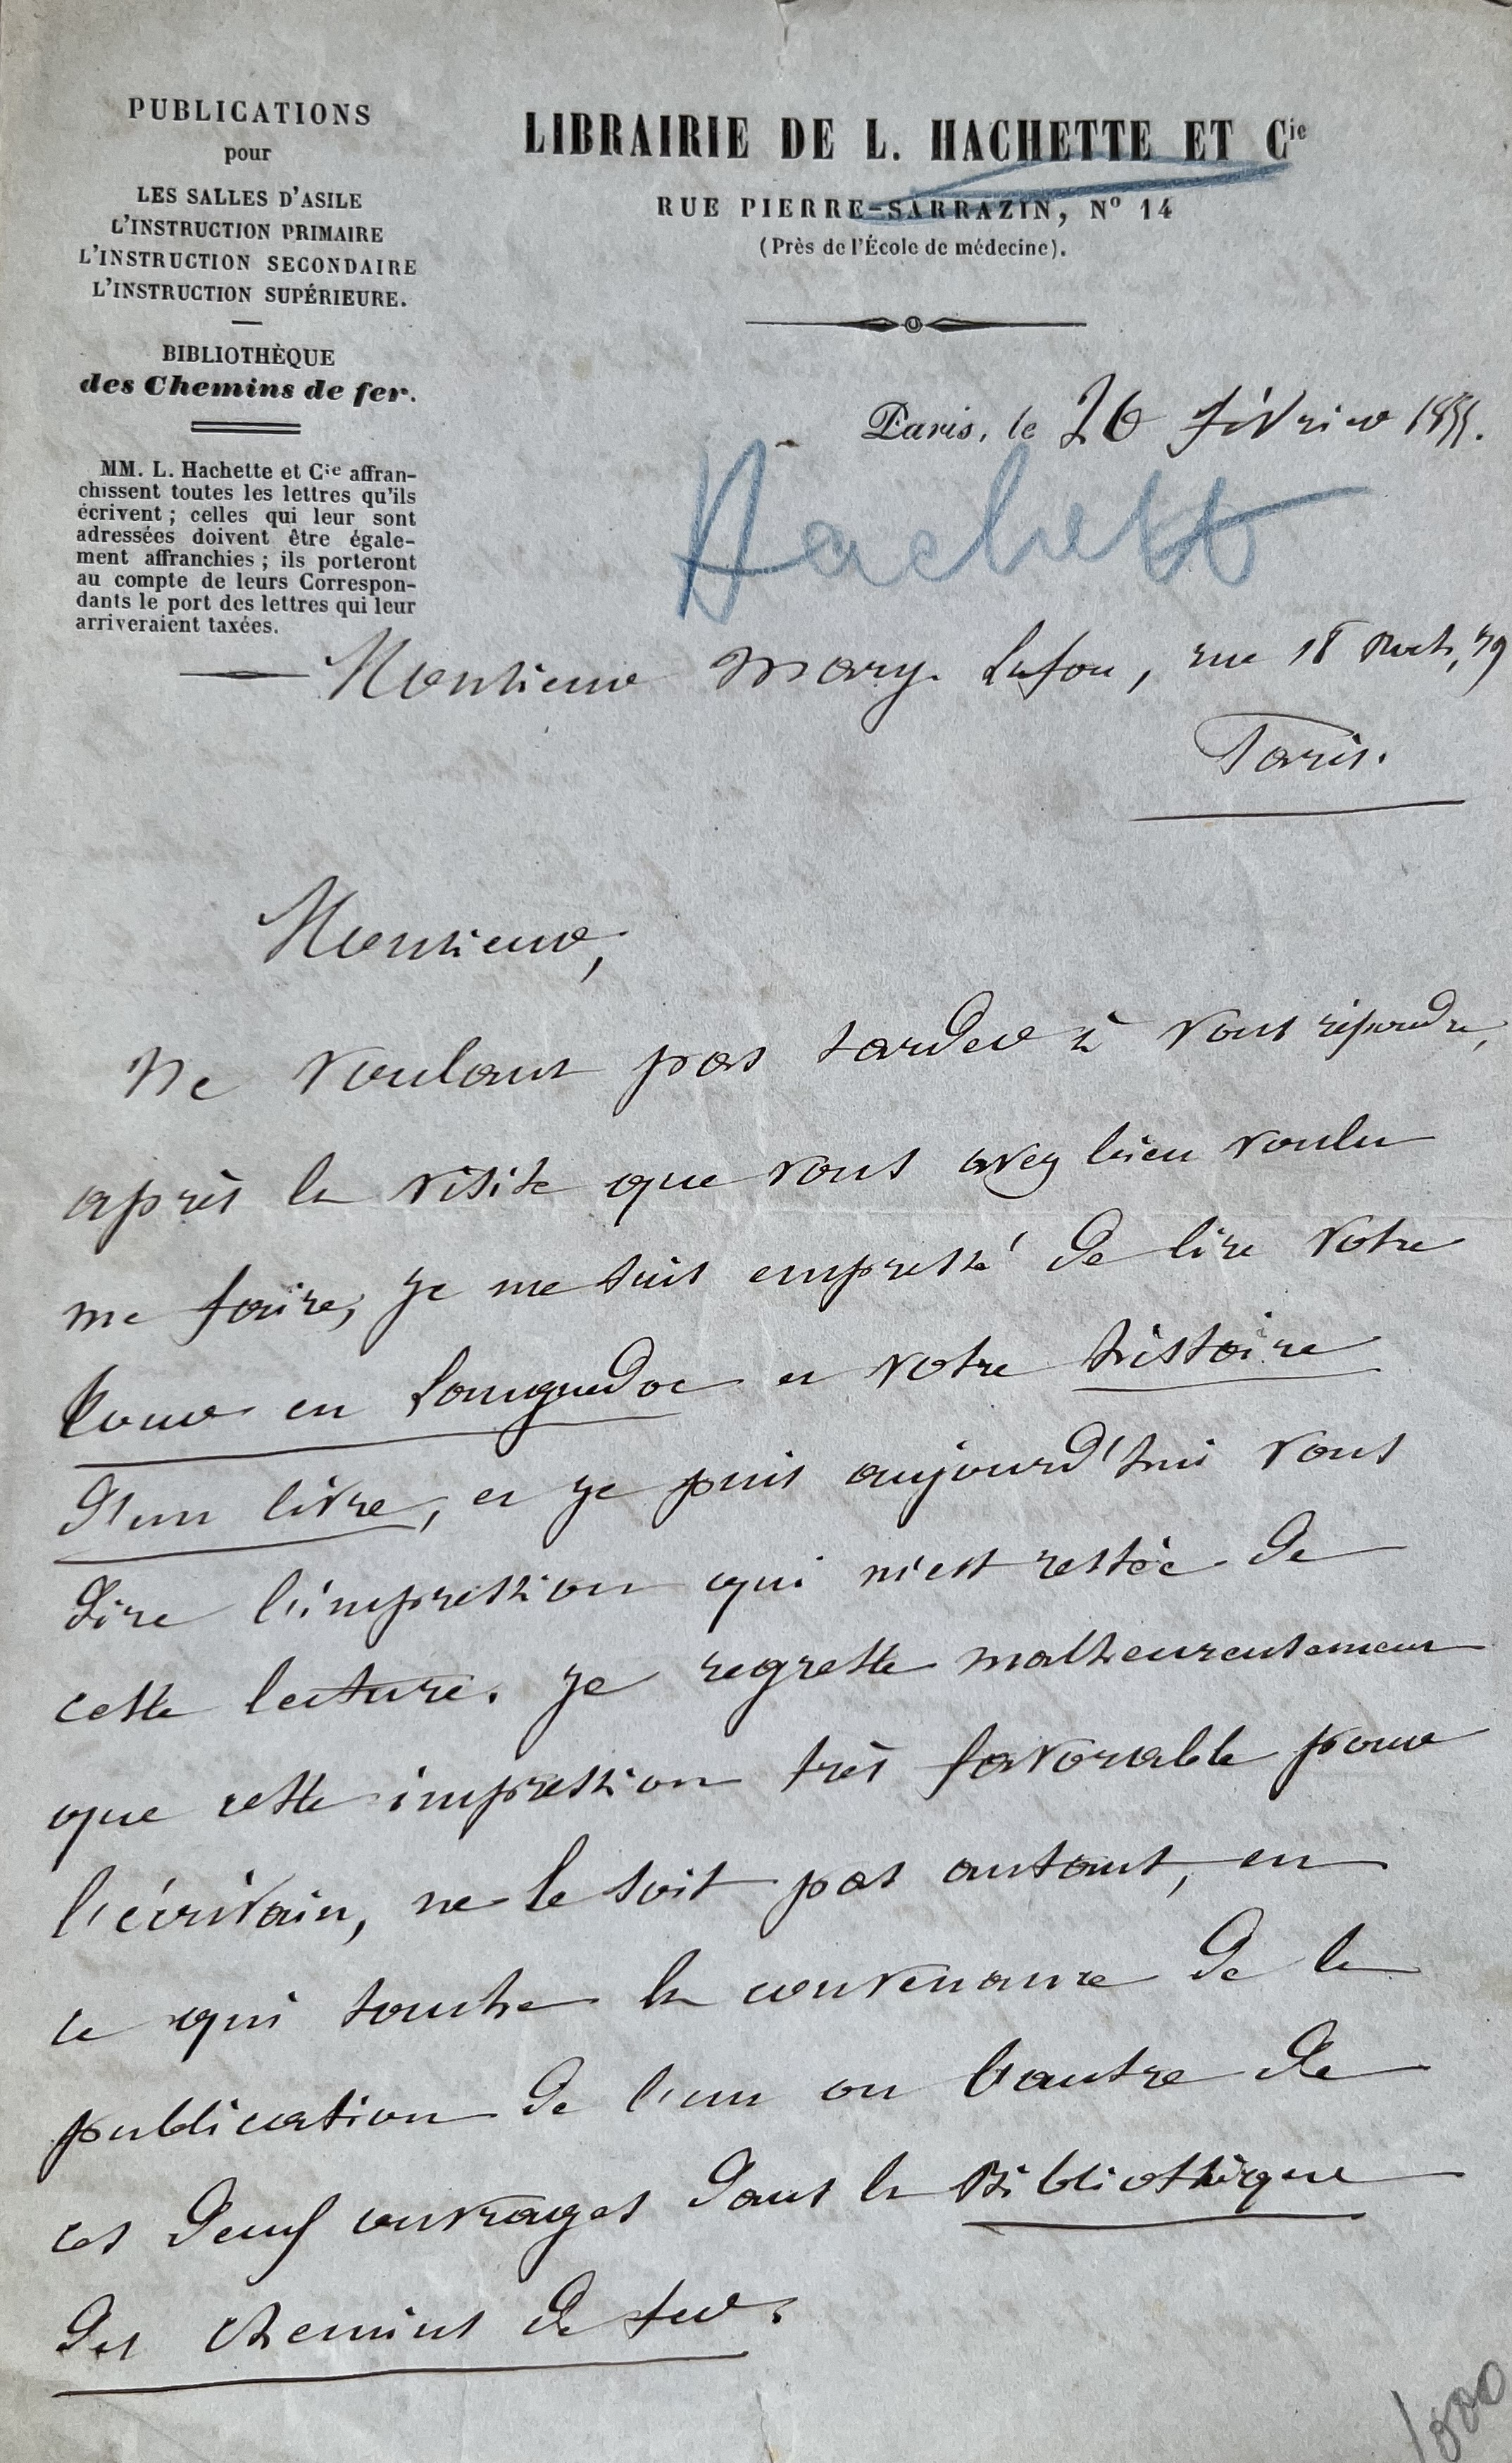 PUBLICATIONS
pour
LES SALLES D'ASILE
L'INSTRUCTION PRIMAIRE
L'INSTRUCTION SECONDAIRE
L'INSTRUCTION SUPÉRIEURE.
BIBLIOTHÈQUE
des Chemins de fer.
MM. L. Hachette et Cie affran-
chissent toutes les lettres qu'ils
écrivent ; celles qui leur sont
adressées doivent être égale-
ment affranchies ; ils porteront
au compte de leurs Correspon-
dants le port des lettres qui leur
arriveraient taxées.
LIBRAIRIE DE L. HACHETTE ET Cie
RUE PIERRE-SARRAZIN, No 14
(Près de l'École de médecine).
Paris, le 26 février 1855.
Hachette
Monsieur Mary-Lafon, rue
Paris.
Monsieur,
Ne voulant pas tarder à vous répondre,
après la visite que vous avez bien voulu
me faire, je me suis empressé de lire votre
en Languedoc et votre histoire
d'un livre, et je puis aujourd'hui vous
dire l'impression qui m'est restée de
cette lecture. Je regrette malheureusement
que cette impression très favorable pour
l'écrivain, ne le soit pas autant, en
ce qui touche la convenance de la
publication de l'un ou l'autre de
ces deux ouvrages dans la Bibliothèque
des chemins de fer.
1000